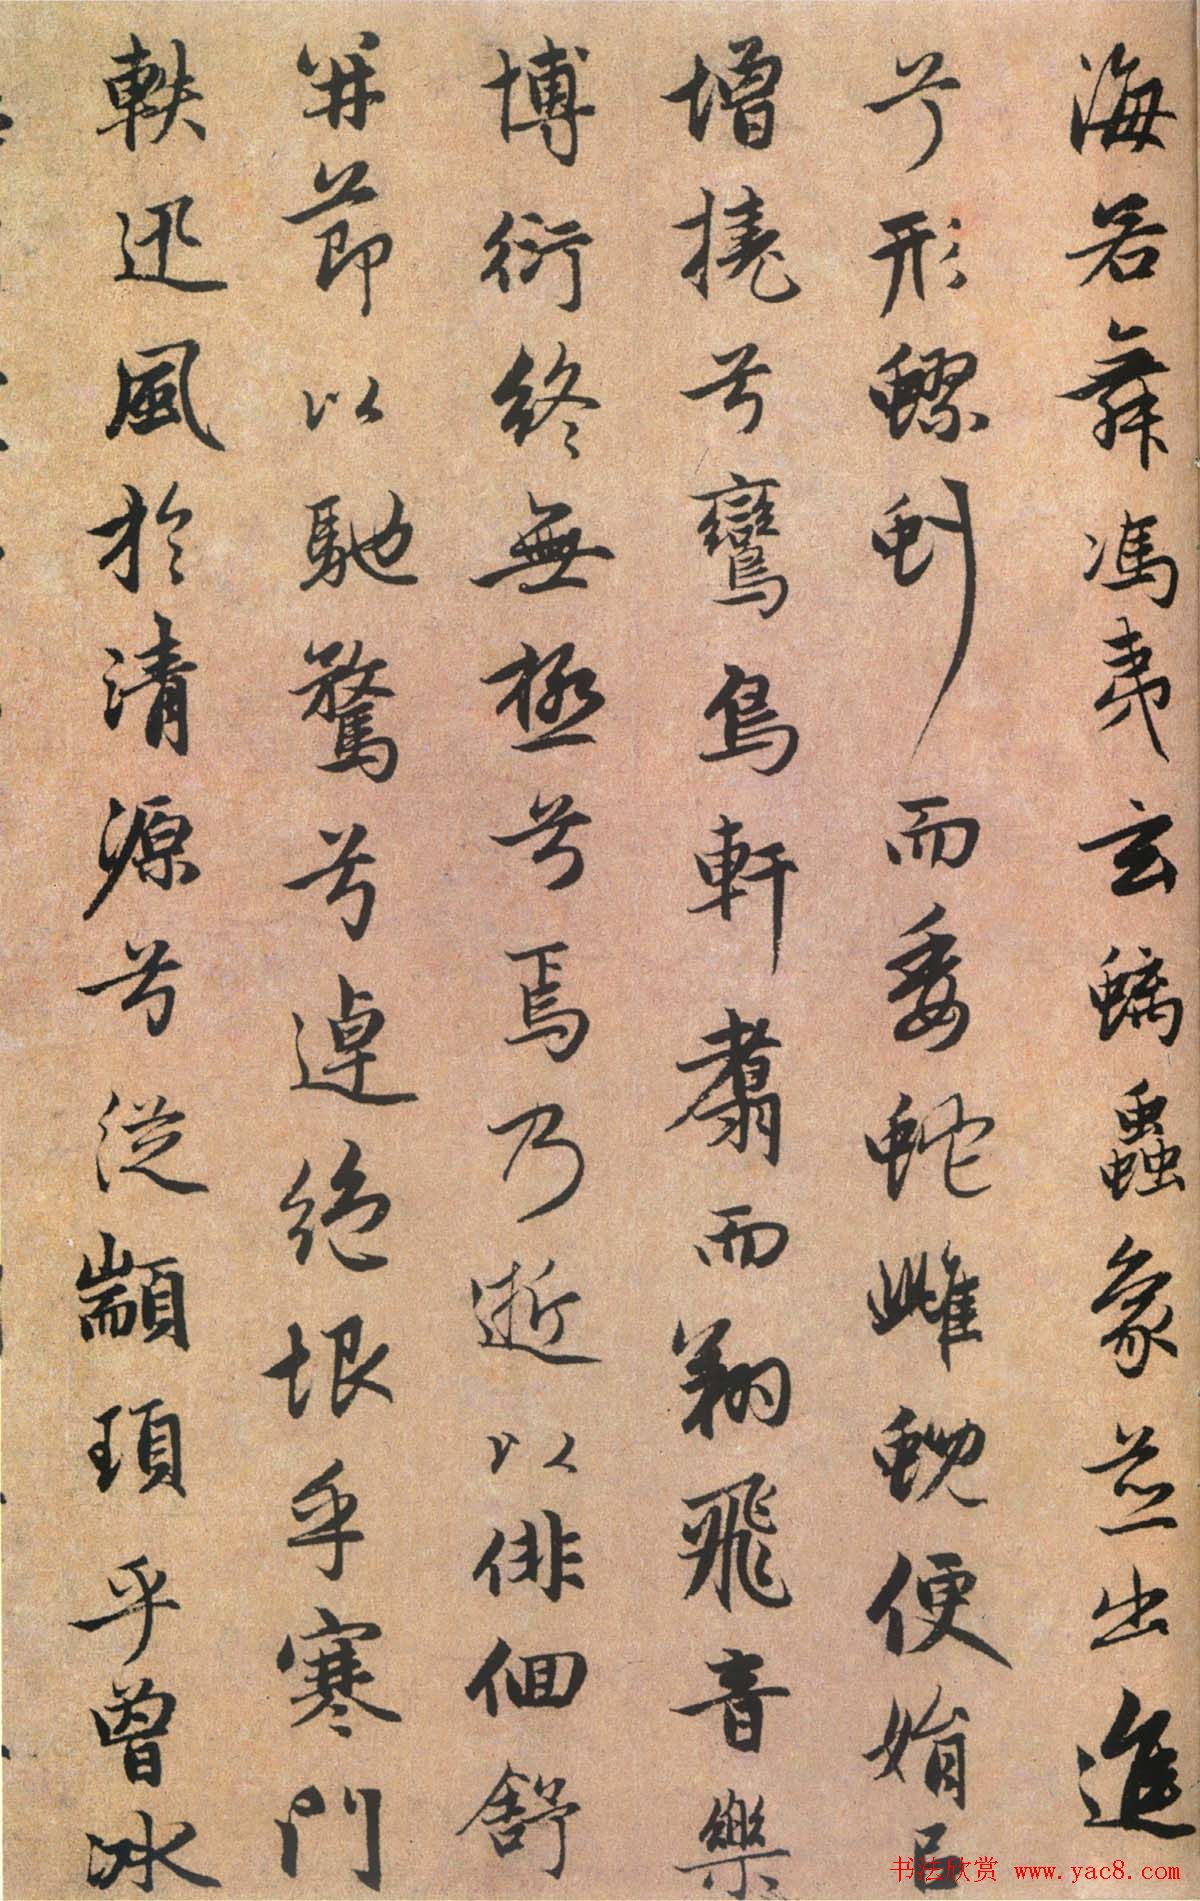 海若舞馮夷玄螭蟲象並出進
兮形蟉虯而委蛇雌蜺便娟㠯
增撓兮鸞鳥軒翥而翔飛音樂
博衍終無極兮焉乃逝以俳佪舒
并節以馳騖兮逴絕垠乎寒門
軼迅風於清源兮從顓頊乎曾冰
书法欣赏 www.yac8.com